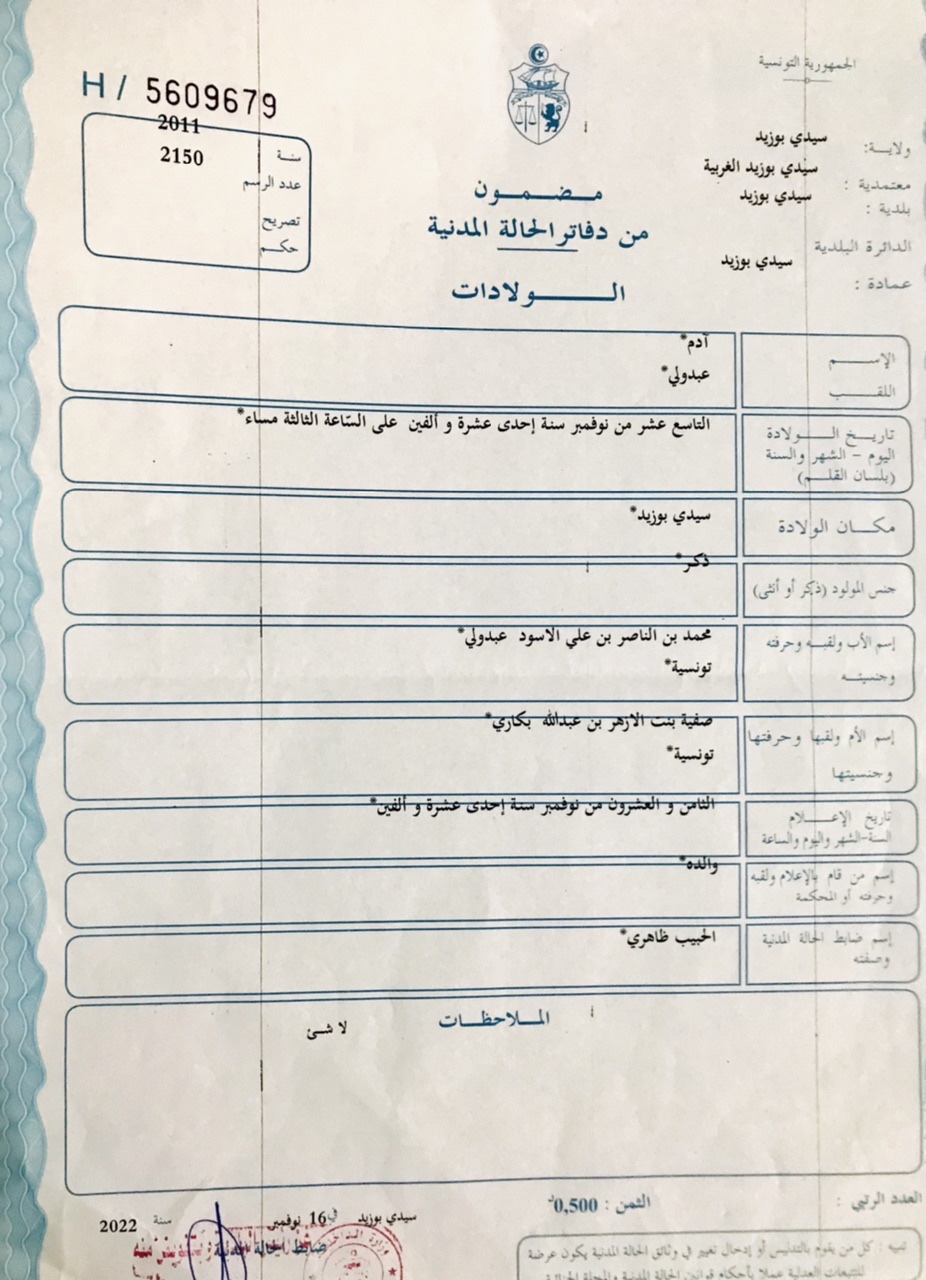 الجمهورية التونسية
H / 5609679
2011
سنة
2150
عدد الرسم
تصريح
حكم
ولاية: سيدي بوزيد
معتمدية : سيدي بوزيد الغربية
بلدية : سيدي بوزيد
الدائرة البلدية
سيدي بوزيد
عمادة :
مضمون
من دفاتر الحالة المدنية
الولادات
الإسم آدم*
اللقب عبدولي*
تاريخ الولادة التاسع عشر من نوفمبر سنة إحدى عشرة و ألفين على السّاعة الثالثة مساء*
اليوم - الشهر والسنة
(بلسان القلم)
مكان الولادة سيدي بوزيد*
جنس المولود (ذكر أو أنثى) ذكر*
إسم الأب ولقبه وحرفته محمد بن الناصر بن علي الاسود عبدولي*
وجنسيته تونسية*
إسم الأم ولقبها وحرفتها صفية بنت الازهر بن عبدالله بكاري*
وجنسيتها تونسية*
تاريخ الإعلام الثامن و العشرون من نوفمبر سنة إحدى عشرة و ألفين*
السنة-الشهر واليوم والساعة
إسم من قام بالإعلام ولقبه والده*
وحرفته أو المحكمة
إسم ضابط الحالة المدنية الحبيب ظاهري*
وصفته
الملاحظات
لا شئ
العدد الرتبي :
الثمن : 0,500د
سيدي بوزيد في 16 نوفمبر سنة 2022
ضابط الحالة المدنية
وزارة الداخلية
تنبيه : كل من يقوم بالتدليس أو إدخال تغيير في وثائق الحالة المدنية يكون عرضة
للتتبعات العدلية عملا بأحكام قوانين الحالة المدنية والمجلة الجزائية